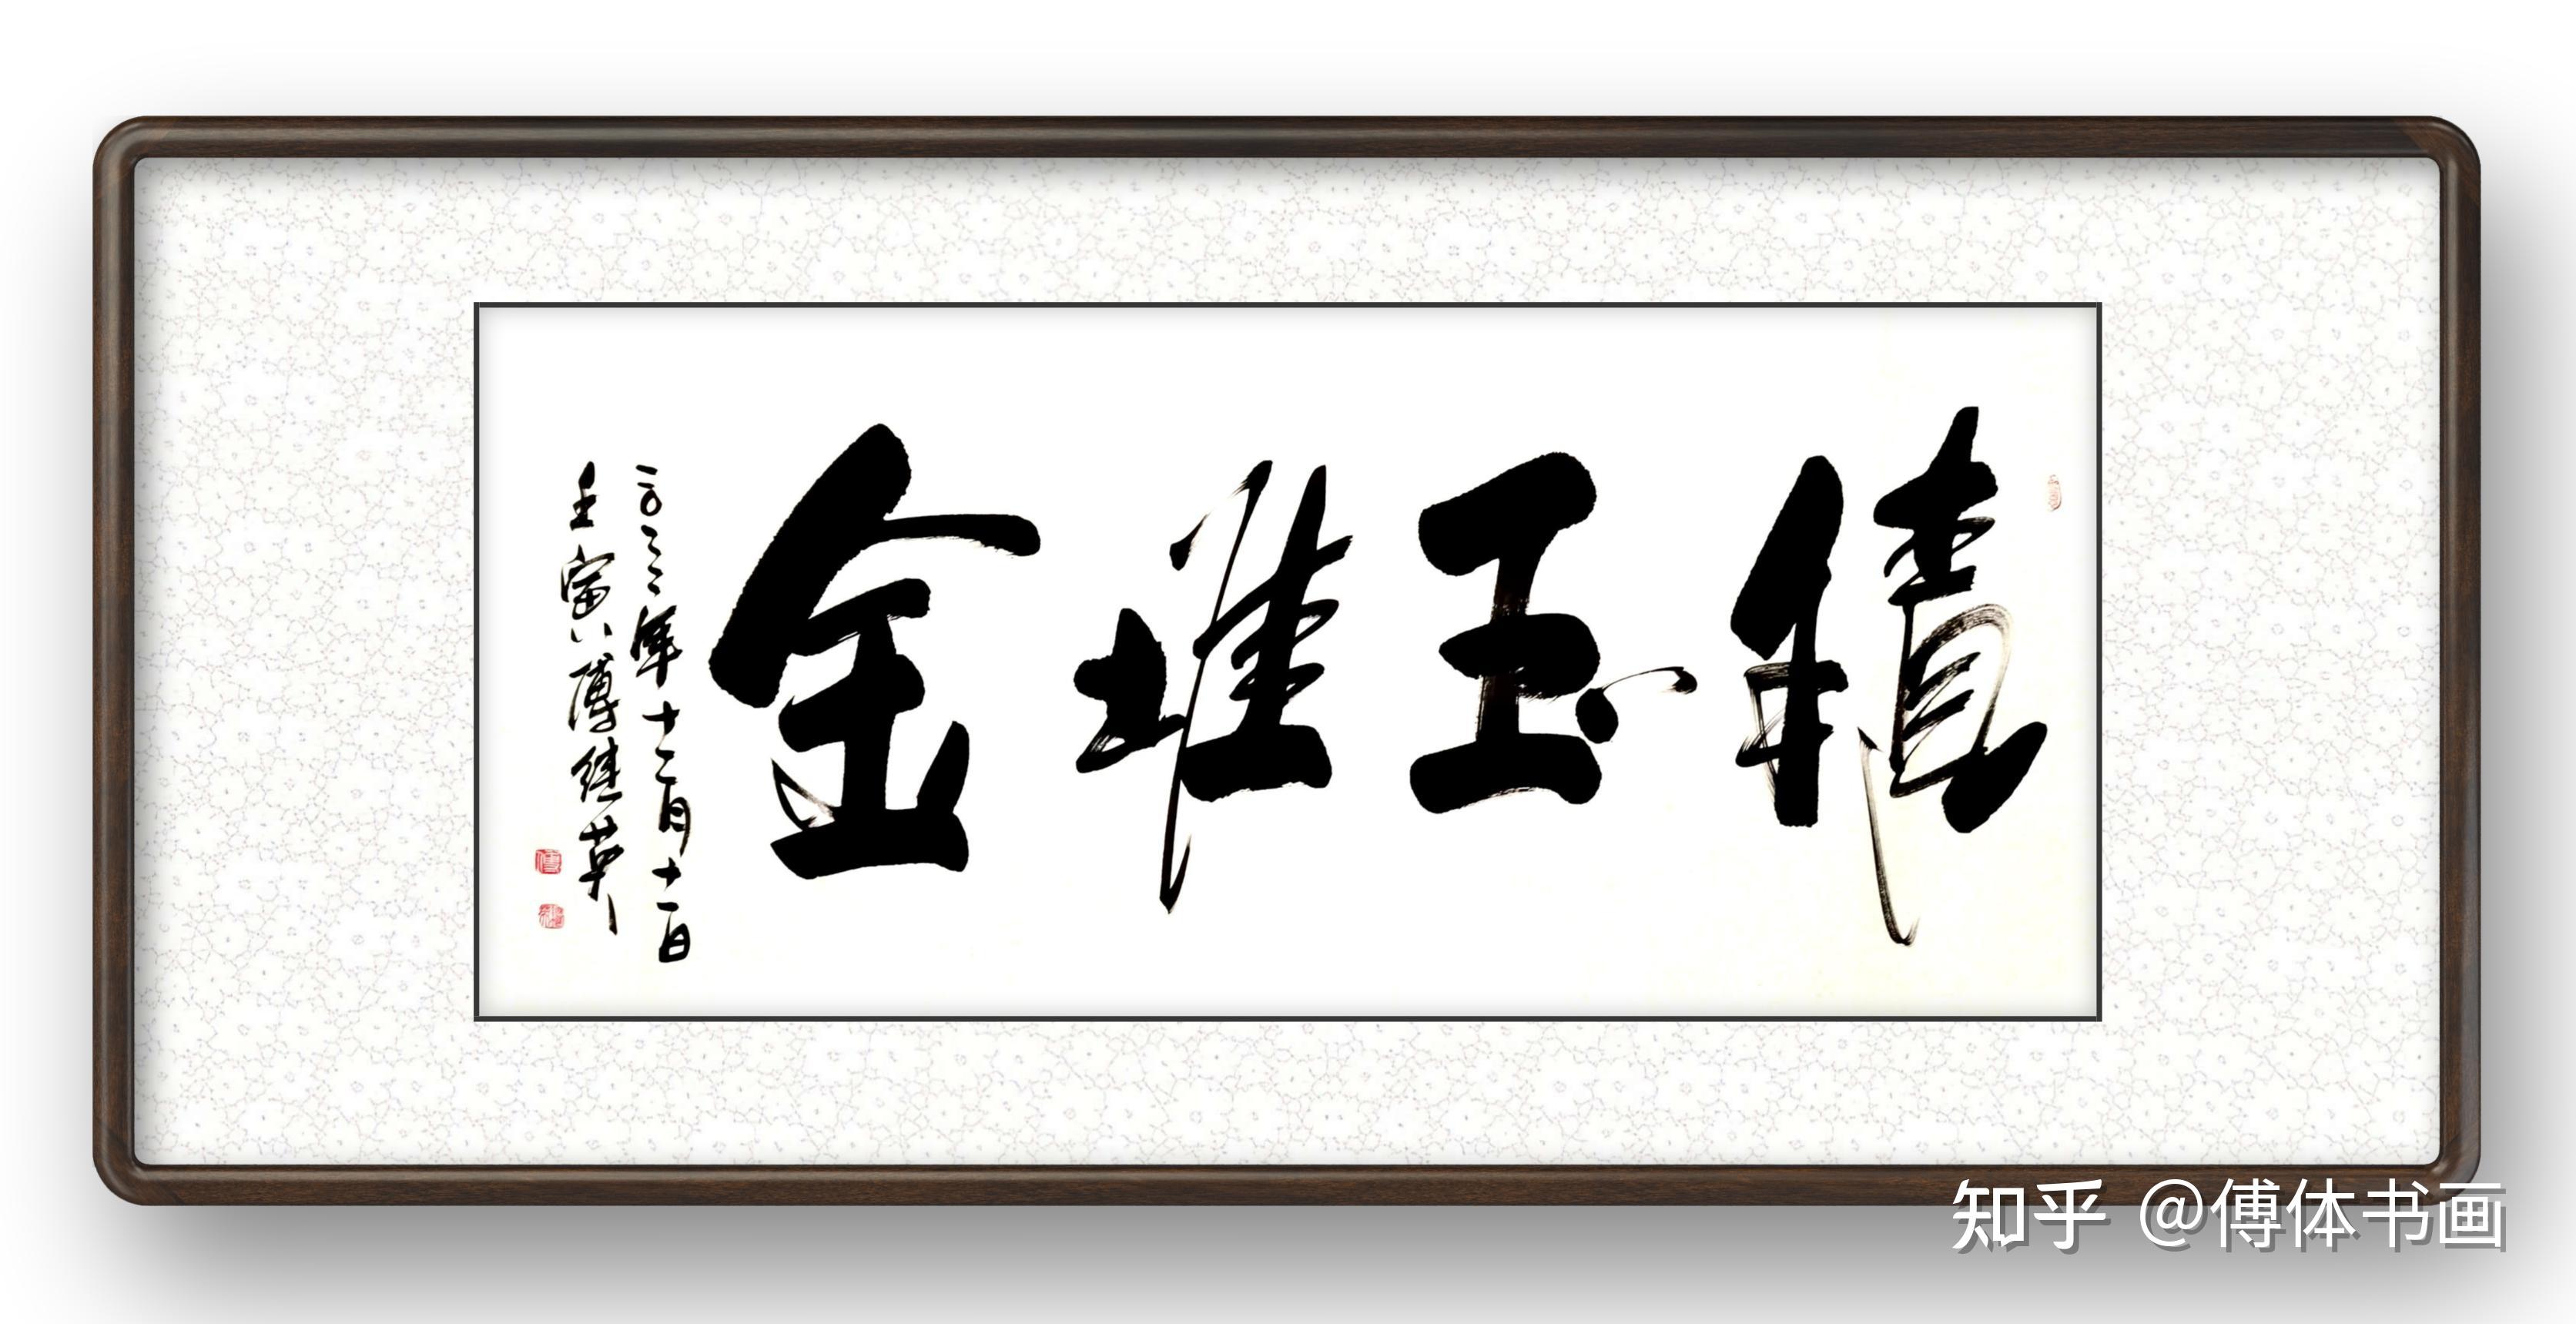 積玉堆金
二〇二二年十二月十一日
壬寅 傅继英
知乎 @傅体书画